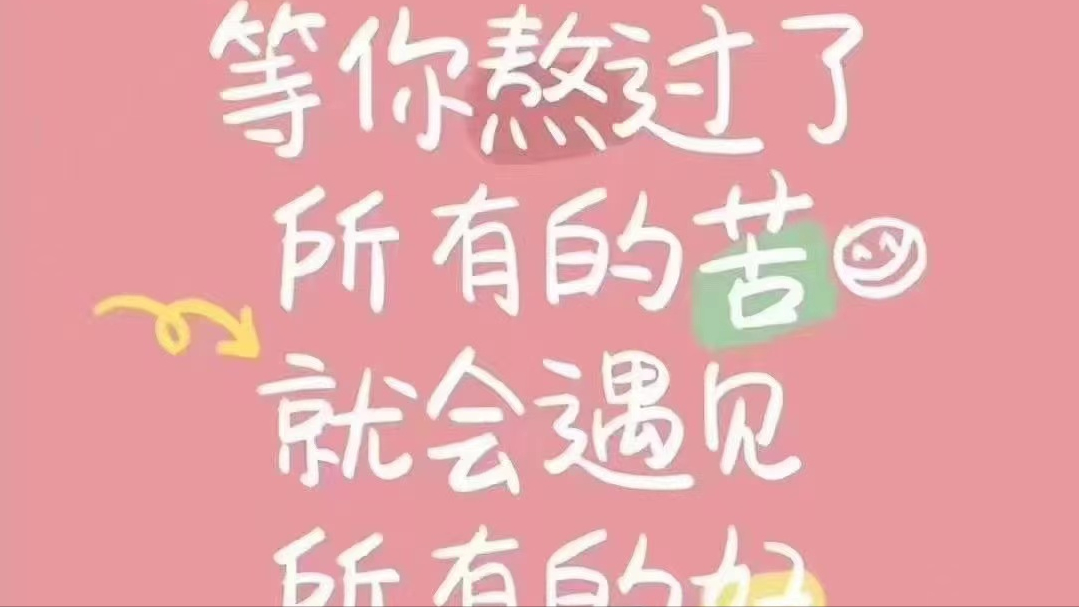 等你熬过了
所有的苦
就会遇见
所有的好